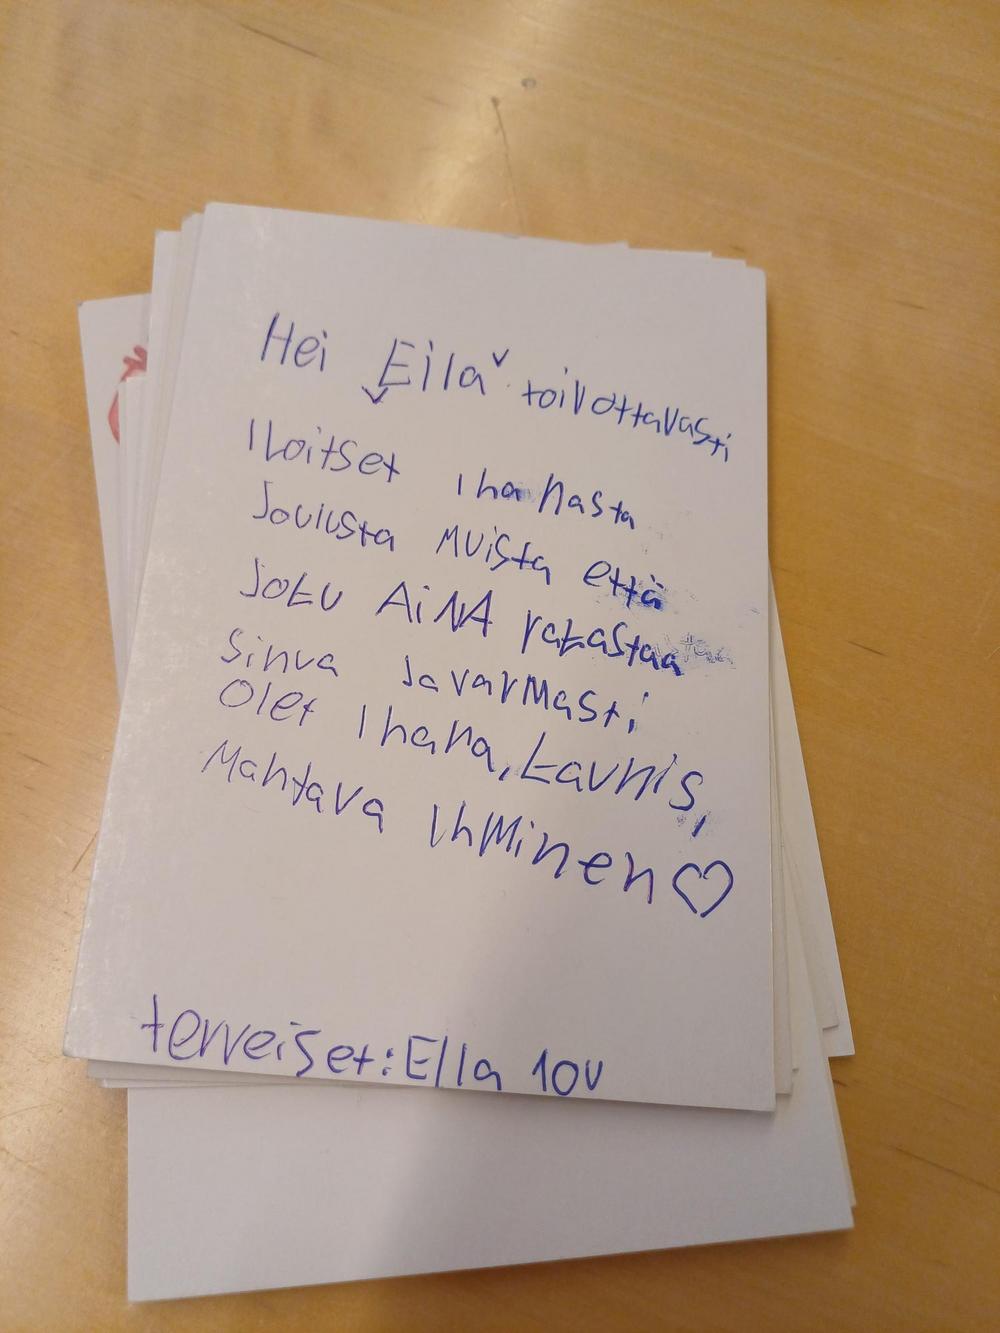 Hei Eila toivottavasti
Iloitset ihanasta
Joulusta Muista että
Joku AiNA rakastaa
Sinua Ja varmasti
Olet Ihana, kaunis,
Mahtava Ihminen ♡
terveiset: Ella 10v